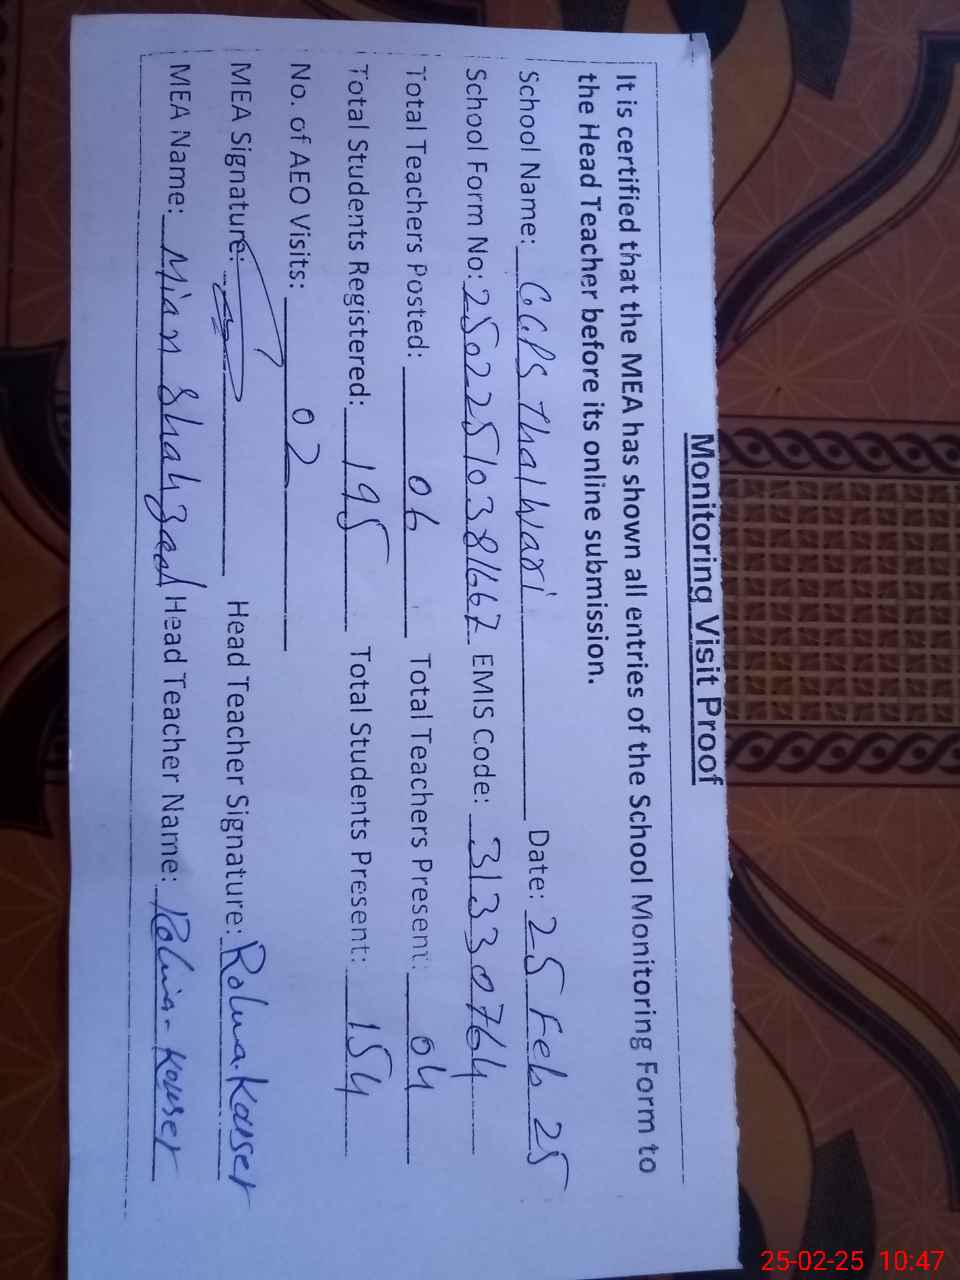 Monitoring Visit Proof
It is certified that the MEA has shown all entries of the School Monitoring Form to
the Head Teacher before its online submission.
School Name: GGPS Thal Wari Date: 25 Feb 25
School Form No: 2502251038166 EMIS Code: 31330764
Total Teachers Posted: 06 Total Teachers Present: 04
Total Students Registered: 195 Total Students Present: 154
No. of AEO Visits: 02
MEA Signature: Head Teacher Signature: Kauser
MEA Name: Mian Shahzad Head Teacher Name: Kouser
25-02-25 10:47